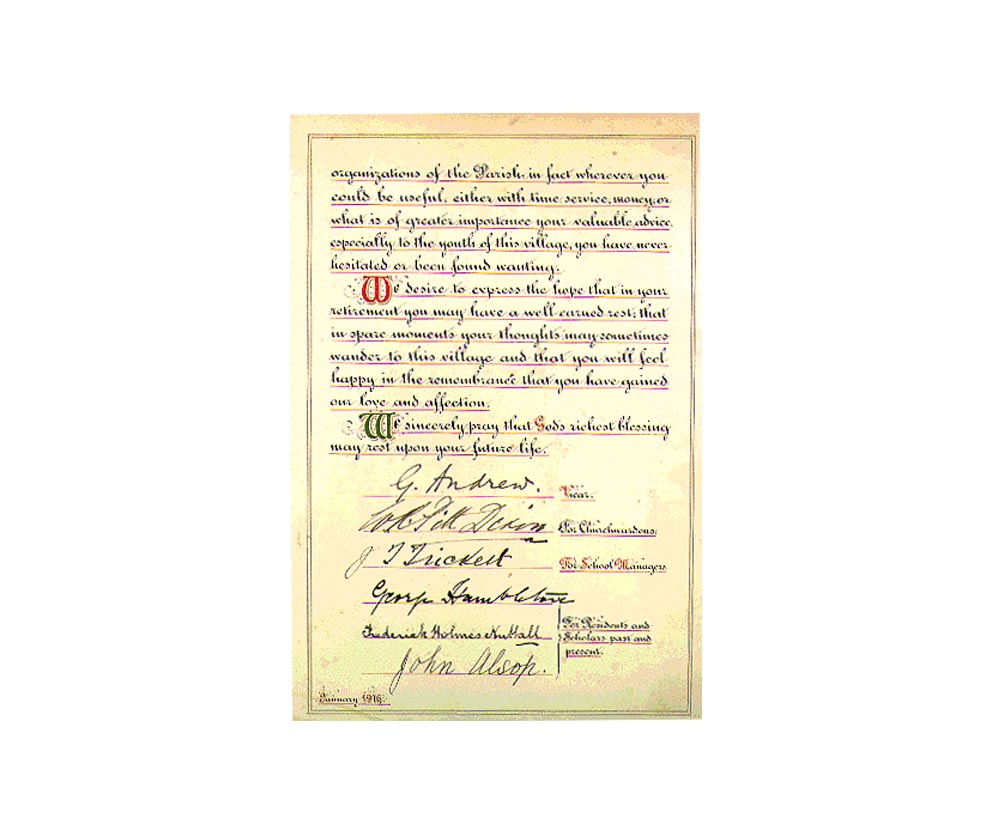 organizations of the Parish, in fact wherever you
could be useful, either with time, service, money, or
what is of greater importance your valuable advice,
especially to the youth of this village, you have never
hesitated or been found wanting.
We desire to express the hope that in your
retirement you may have a well earned rest; that
in spare moments your thoughts may sometimes
wander to this village and that you will feel
happy in the remembrance that you have gained
our love and affection.
We sincerely pray that God's richest blessing
may rest upon your future life.
G. Andrew. Vicar.
Dixon For Churchwardens.
J T Trickett For School Managers
George Hambleton
Frederick Holmes Nuttall For Residents and
Scholars past and
present.
John Alsop.
January 1916.